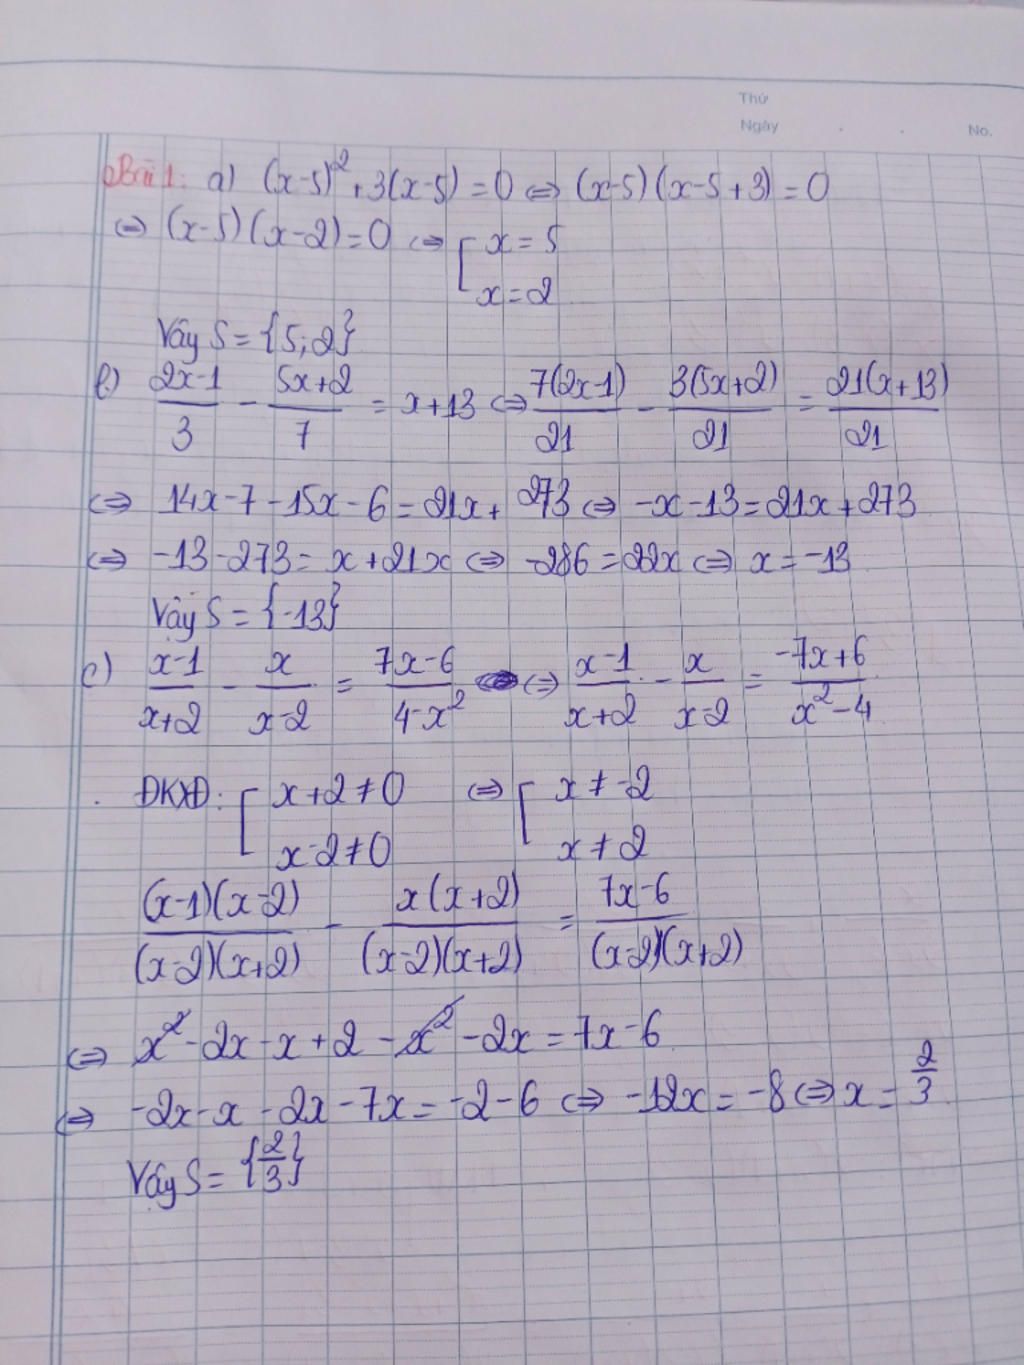 Thứ
Ngày . . No.
Bài 1: a) (x-5)² + 3(x-5) = 0 ⇔ (x-5)(x-5+3) = 0
⇔ (x-5)(x-2) = 0 ⇔ [ x = 5
x = 2
Vậy S = {5;2}
b) (2x-1)/3 - (5x+2)/7 = x+13 ⇔ 7(2x-1)/21 - 3(5x+2)/21 = 21(x+13)/21
⇔ 14x-7-15x-6 = 21x+273 ⇔ -x-13 = 21x+273
⇔ -13-273 = x+21x ⇔ -286 = 22x ⇔ x = -13
Vậy S = {-13}
c) (x-1)/(x+2) - x/(x-2) = (7x-6)/(4-x²) ⇔ (x-1)/(x+2) - x/(x-2) = (-7x+6)/(x²-4)
ĐKXĐ: [ x+2≠0 ⇔ [ x≠-2
x-2≠0 x≠2
(x-1)(x-2)/(x-2)(x+2) - x(x+2)/(x-2)(x+2) = (7x-6)/(x-2)(x+2)
⇔ x²-2x-x+2-x²-2x = 7x-6
⇔ -2x-x-2x-7x = -2-6 ⇔ -12x = -8 ⇔ x = 2/3
Vậy S = {2/3}